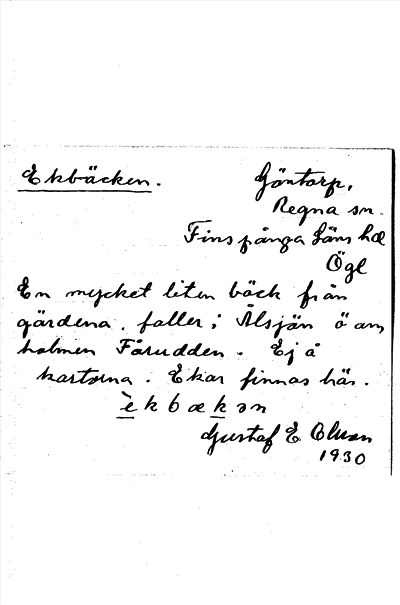 Ekbäcken.
Göntorp,
Regna sn.
Finspånga läns hd
Ögl
En mycket liten bäck från
gärdena, faller i Älsjön ö om
holmen Fårudden. Ej å
kartorna. Ekar finnas här.
èkbækən
Gustaf E Olsson
1930